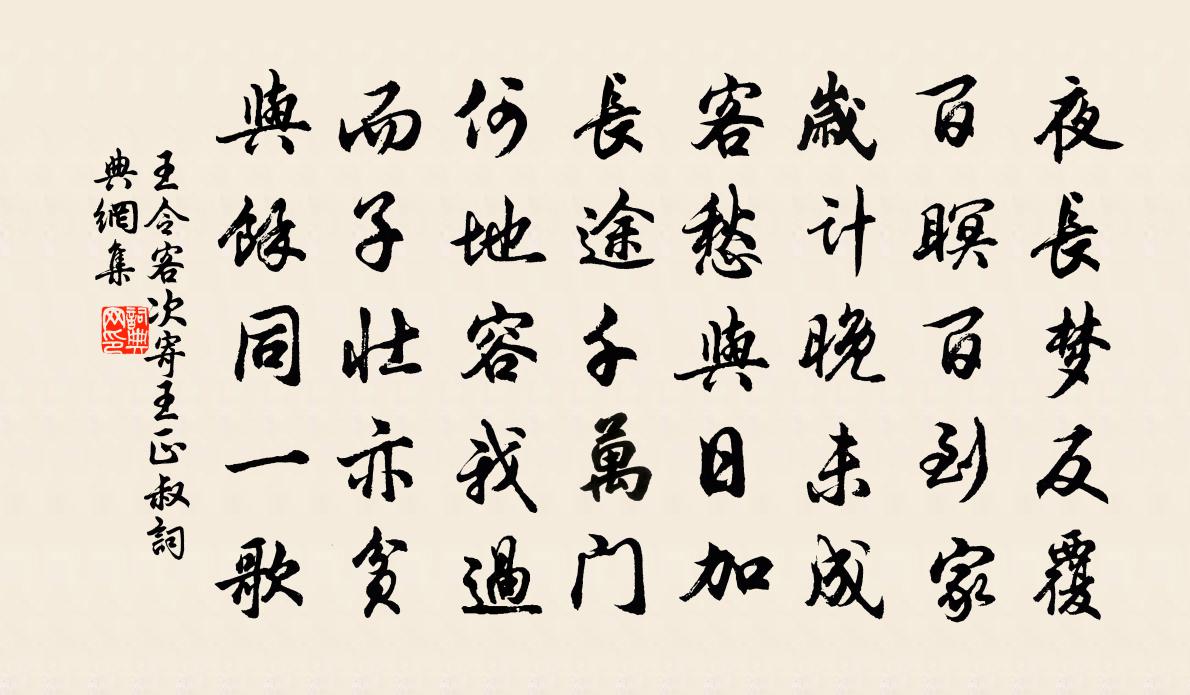 夜長梦反覆
百瞑百到家
歲计晚未成
客愁與日加
長途千萬门
何地容我過
而子壮亦貧
與餘同一歌
王令客次寄王正叔詞
典網集
詞典
网印